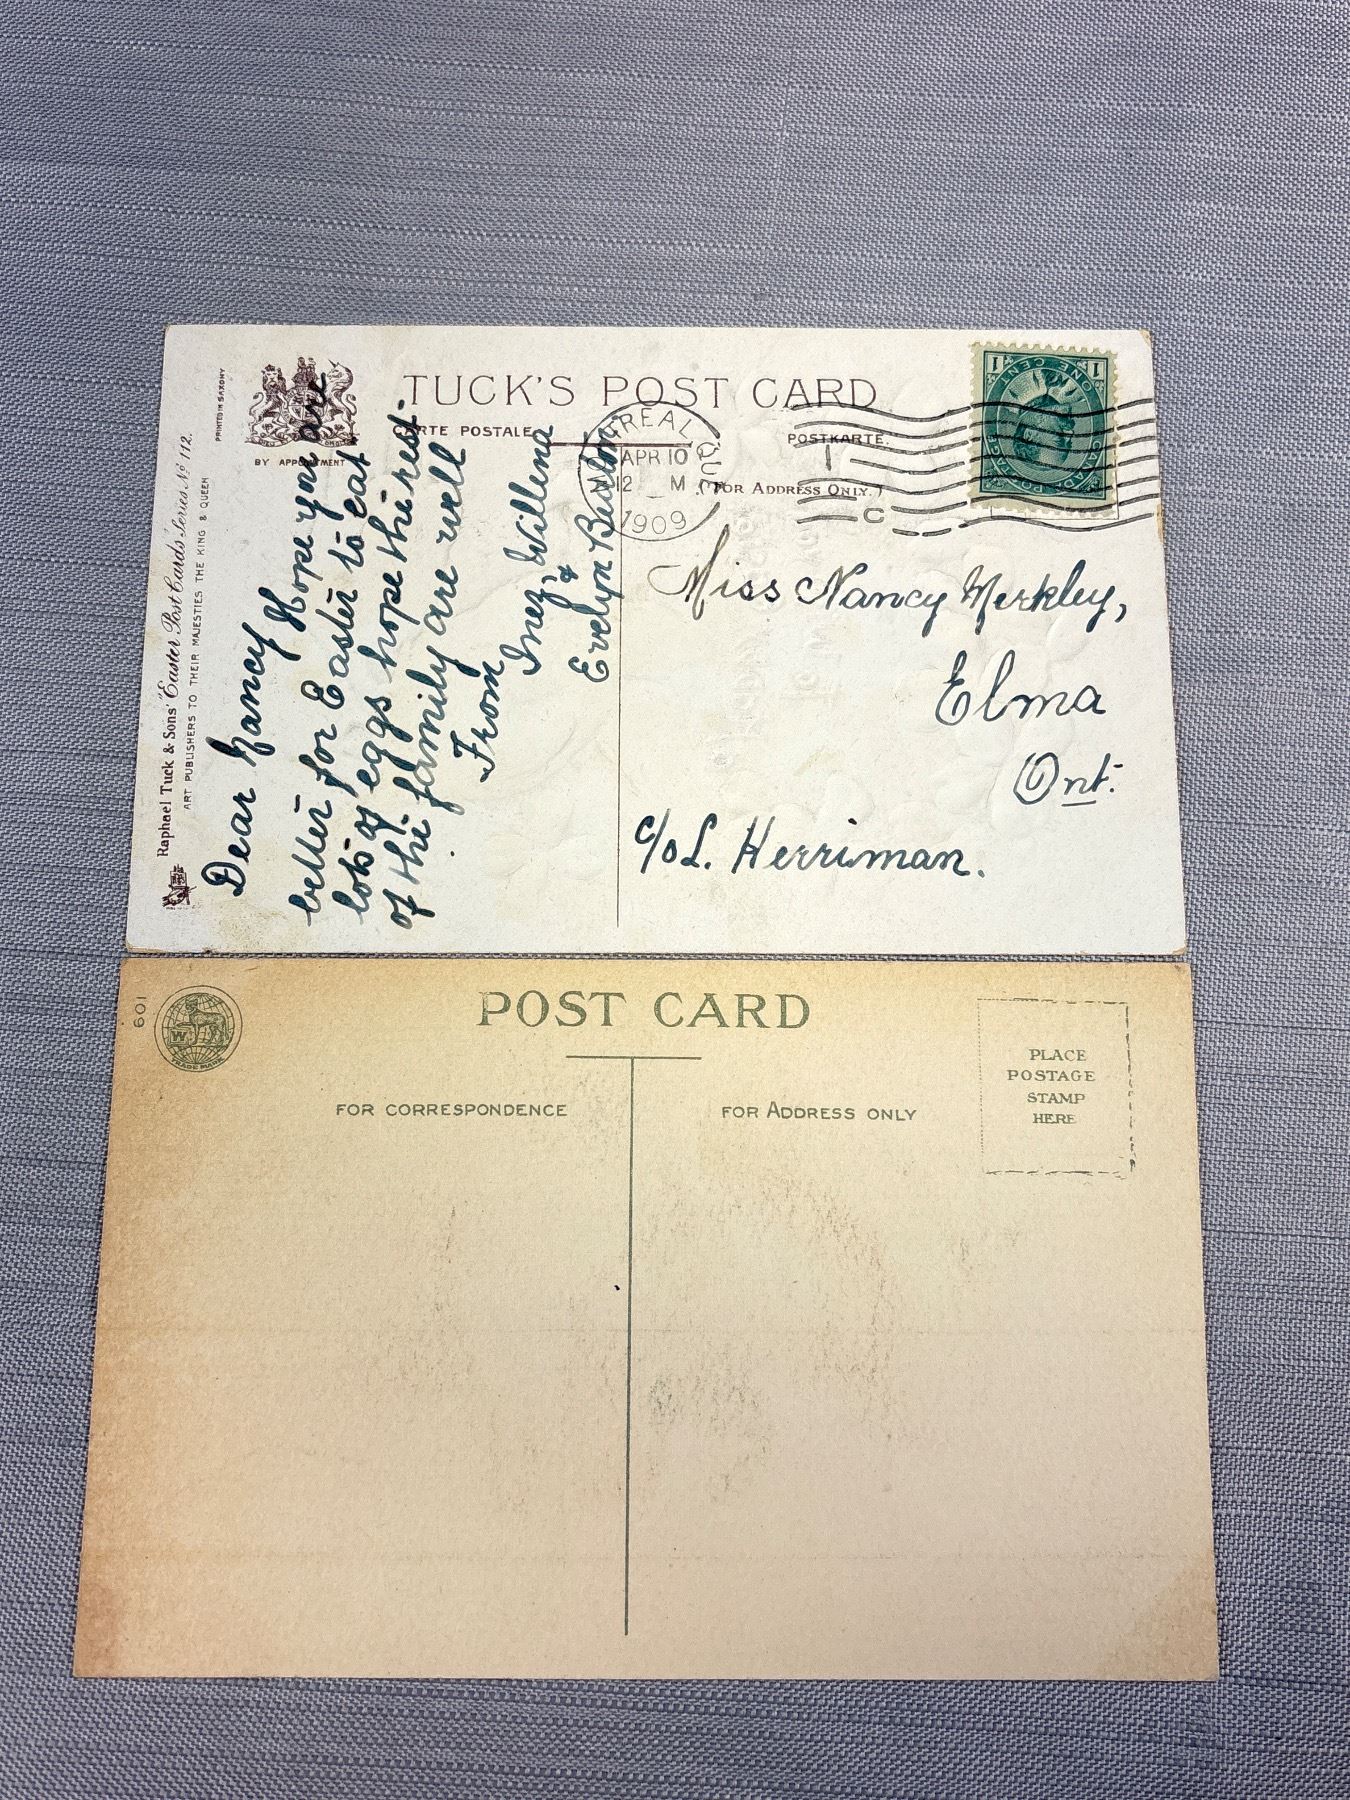 TUCK'S POST CARD
CARTE POSTALE
POSTKARTE.
(FOR ADDRESS ONLY.)
BY APPOINTMENT
PRINTED IN SAXONY
Raphael Tuck & Sons' "Easter" Post Cards Series No 112.
ART PUBLISHERS TO THEIR MAJESTIES THE KING & QUEEN
MONTREAL QUE
APR 10
12 M
1909
1
C
1 1
ONE CENT
CANADA POSTAGE
Dear Nancy Hope you are
better for Easter to eat
lots of eggs hope the rest
of the family are well
From
Inez, Willena
&
Evelyn
Miss Nancy Merkley,
Elma
Ont.
c/o L. Herriman.
601
W
TRADE MARK
POST CARD
FOR CORRESPONDENCE
FOR ADDRESS ONLY
PLACE
POSTAGE
STAMP
HERE